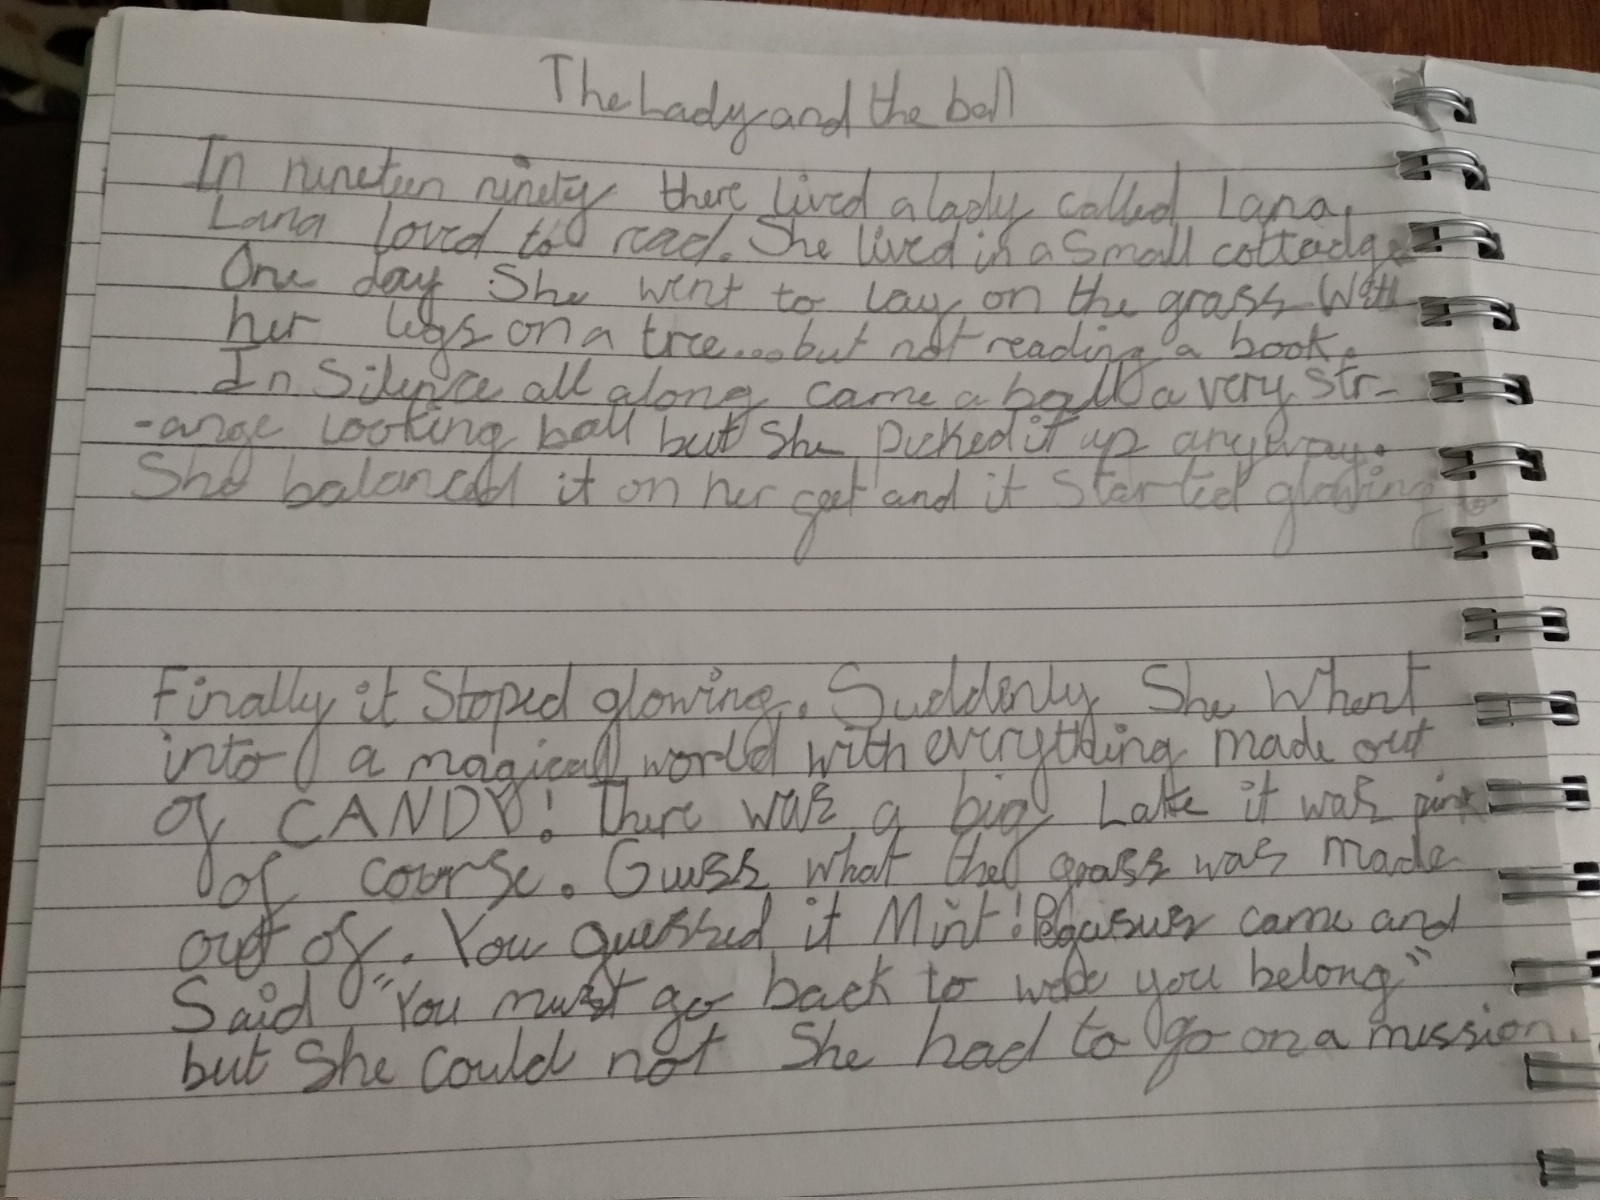 The Lady and the ball
In nineteen ninety there lived a lady called Lana.
Lana loved to read. She lived in a small cottadge
One day She went to lay on the grass With
her legs on a tree...but not reading a book.
In Silence all along came a ball a very str-
-ange looking ball but She picked it up anyway.
She balanced it on her feet and it started glowing
Finally it Stoped glowing. Suddenly She Whent
into a magical world with everything made out
of CANDY! There was a big Lake it was pink
of course. Guess what the grass was made
out of. You guessed it Mint! Pegasus came and
Said "You must go back to were you belong"
but She could not She had to go on a mission.